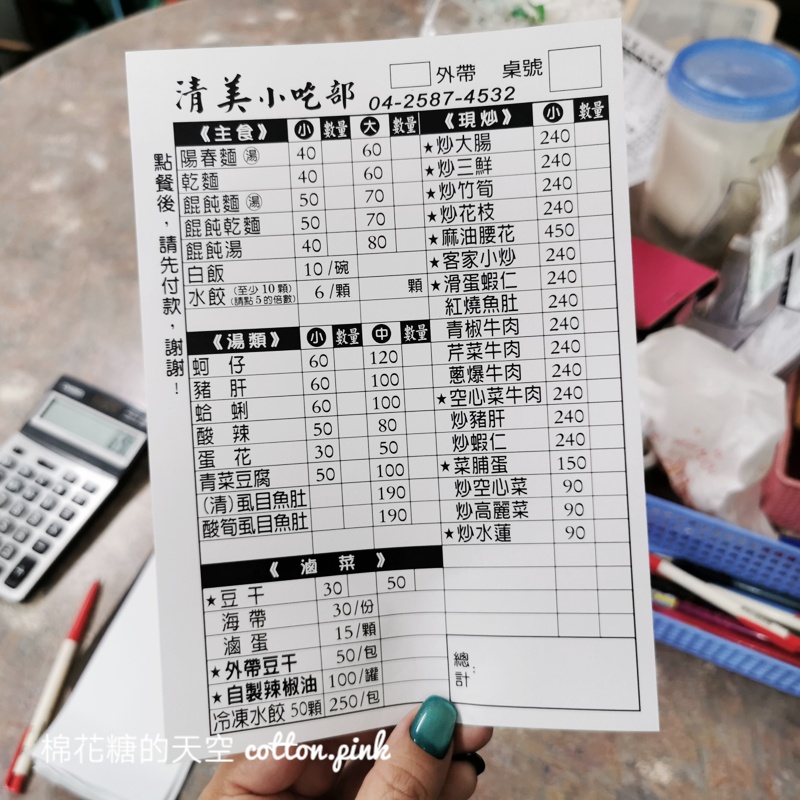 清美小吃部 外帶 桌號
04-2587-4532
點餐後，請先付款，謝謝！
《主食》 小 數量 大 數量
陽春麵 湯 40 60
乾麵 40 60
餛飩麵 湯 50 70
餛飩乾麵 50 70
餛飩湯 40 80
白飯 10/碗
水餃 (至少10顆) (請點5的倍數) 6/顆 顆
《湯類》 小 數量 中 數量
蚵仔 60 120
豬肝 60 100
蛤蜊 60 100
酸辣 50 80
蛋花 30 50
青菜豆腐 50 100
(清)虱目魚肚 190
酸筍虱目魚肚 190
《滷菜》
★豆干 30 50
海帶 30/份
滷蛋 15/顆
★外帶豆干 50/包
★自製辣椒油 100/罐
冷凍水餃50顆 250/包
《現炒》 小 數量
★炒大腸 240
★炒三鮮 240
★炒竹筍 240
★炒花枝 240
★麻油腰花 450
★客家小炒 240
★滑蛋蝦仁 240
紅燒魚肚 240
青椒牛肉 240
芹菜牛肉 240
蔥爆牛肉 240
★空心菜牛肉 240
炒豬肝 240
炒蝦仁 240
★菜脯蛋 150
炒空心菜 90
炒高麗菜 90
★炒水蓮 90
總計：
棉花糖的天空 cotton.pink